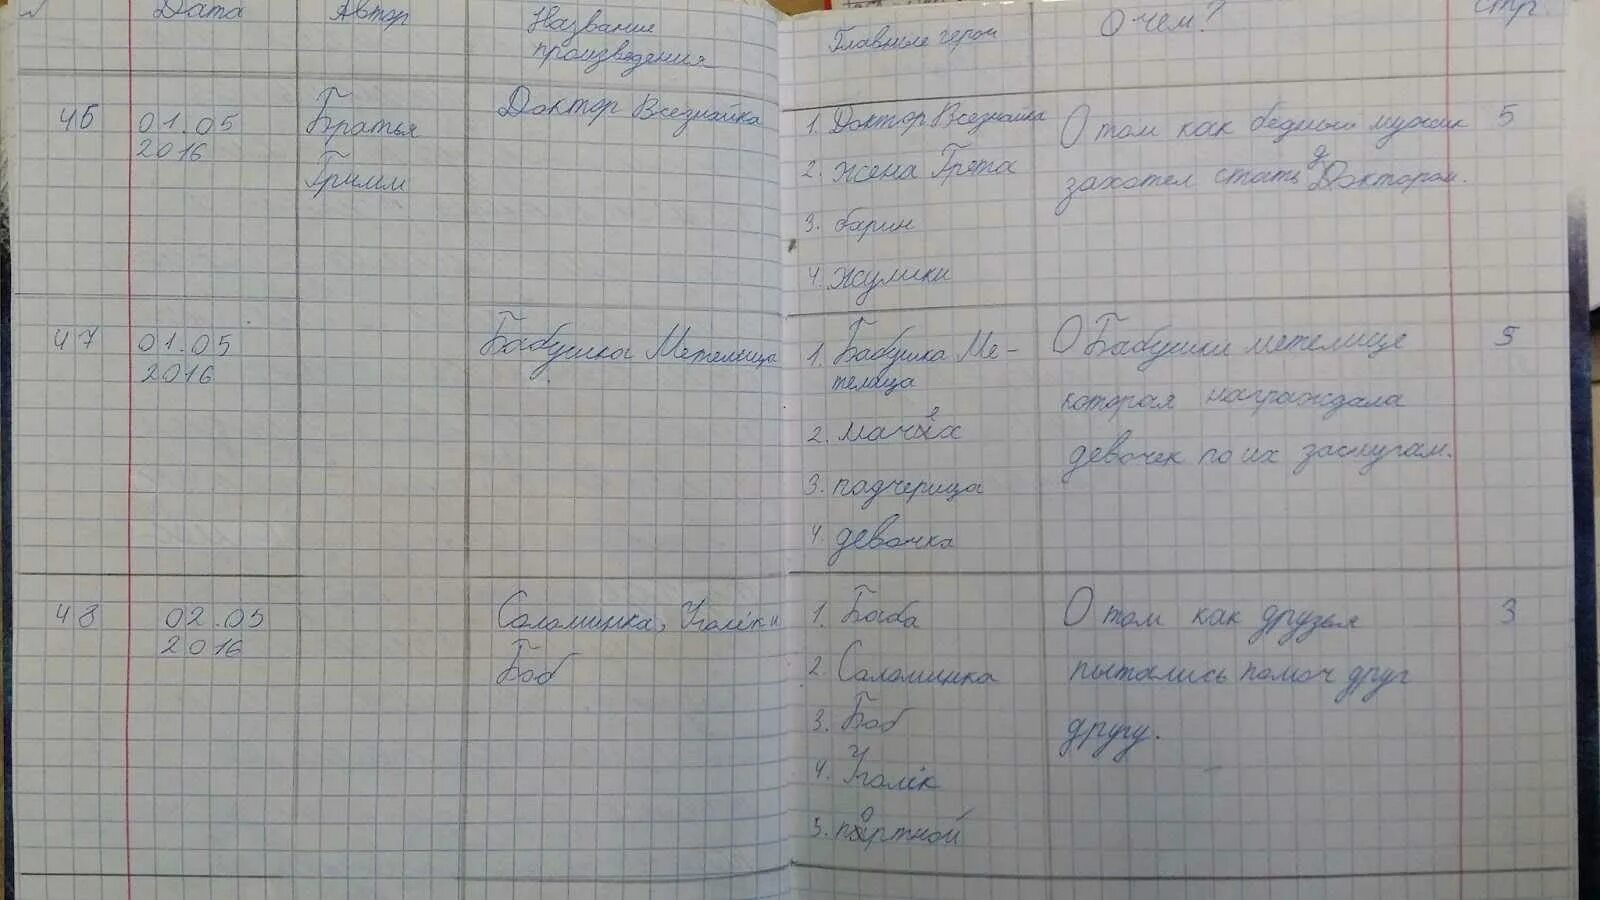 № Дата Автор Название произведения Главные герои О чём? стр.
46 01.05 2016
Братья
Гримм
Доктор Всезнайка
1. Доктор Всезнайка
2. жена Грета
3. барин
4. жулики
О том как бедный мужик
захотел стать Доктором.
5
47 01.05 2016
Бабушка Метелица
1. Бабушка Ме-
телица
2. мачех
3. падчерица
4. девочка
О Бабушки метелице
которая награждала
девочек по их заслугам.
5
48 02.05 2016
Соломинка, Уголёк и
Боб
1. Баба
2. Соломинка
3. Боб
4. Уголёк
5. портной
О том как друзья
пытались помоч друг
другу.
3